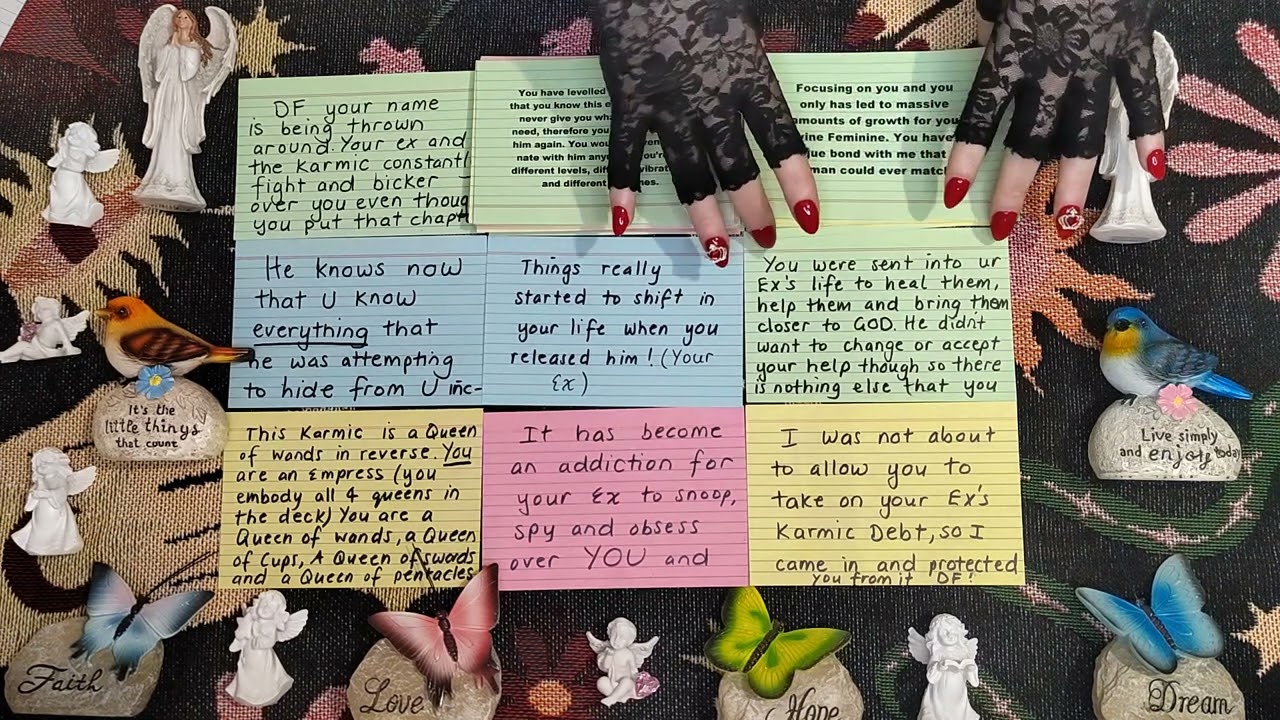 DF your name
is being thrown
around. Your ex and
the Karmic
fight and bicker
over you even
you put that
You have levelled
that you know this
never give you
need, therefore you
him again. You
nate with him
different levels,
and different
Focusing on you and you
only has led to massive
amounts of growth for you
Feminine. You have
bond with me that
man could ever
He knows now
that U know
everything that
he was attempting
to hide from U inc-
Things really
started to shift in
your life when you
released him! (Your
Ex)
You were sent into ur
Ex's life to heal them,
help them and bring them
closer to GOD. He didnt
want to change or accept
your help though so there
is nothing else that you
This Karmic is a Queen
of wands in reverse. You
are an Empress (you
embody all 4 queens in
the deck) You are a
Queen of wands, a Queen
of Cups, A Queen of swords
and a Queen of pentacles
It has become
an addiction for
your Ex to snoop,
spy and obsess
over YOU and
I was not about
to allow you to
take on your Ex's
Karmic Debt, so I
came in and protected
you from it DF!
It's the
little things
that count
Live simply
and enjoy today
Faith
Love
Hope
Dream